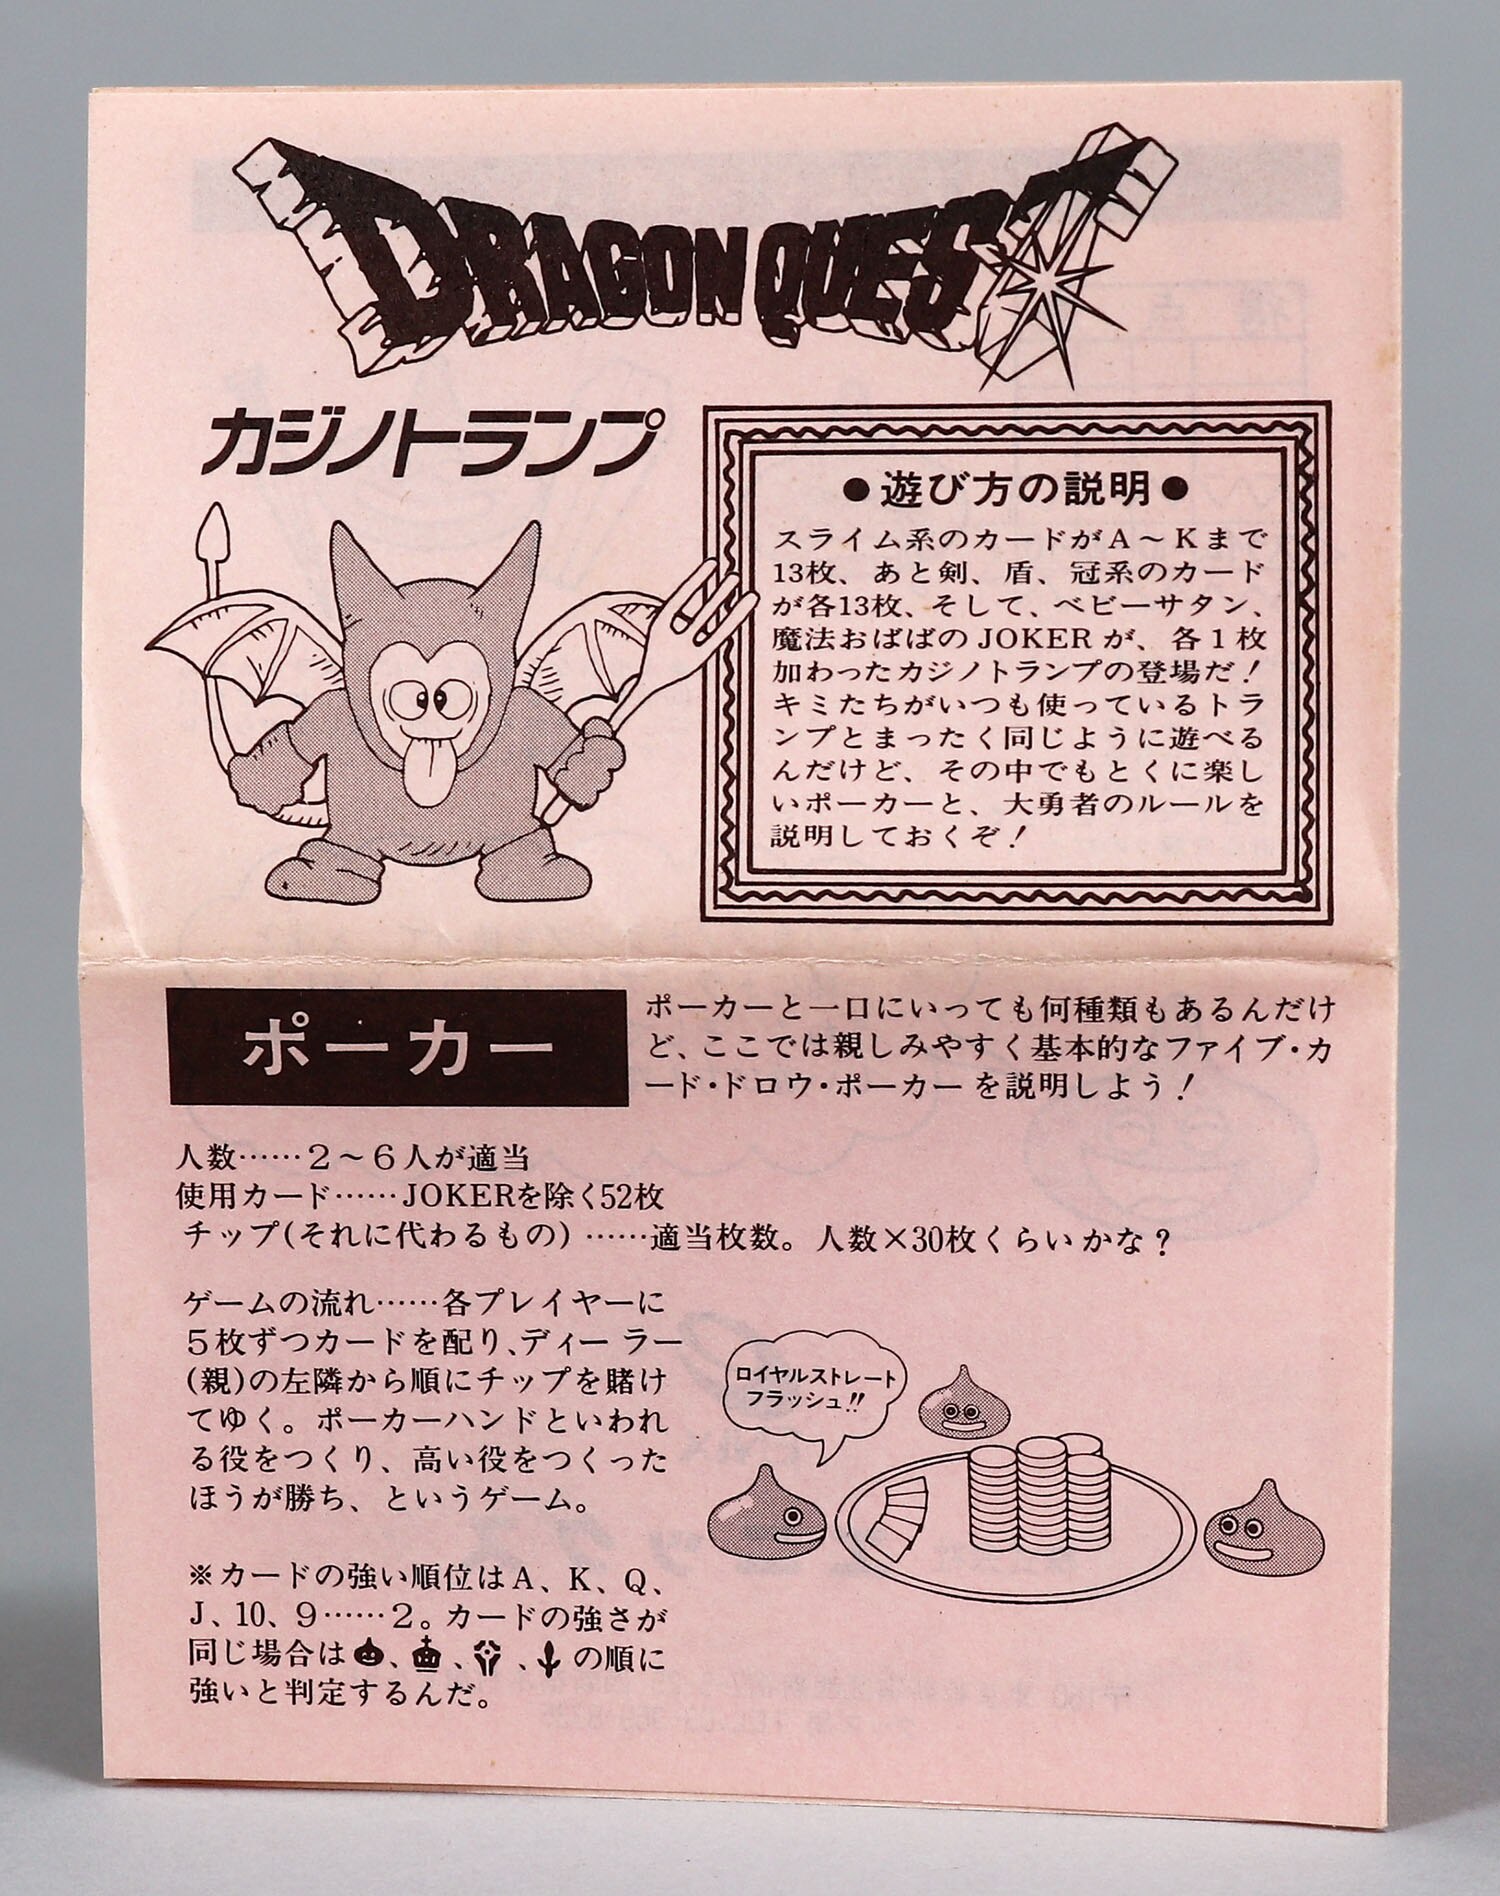 DRAGON QUEST
カジノトランプ
●遊び方の説明●
スライム系のカードがA～Kまで
13枚、あと剣、盾、冠系のカード
が各13枚、そして、ベビーサタン、
魔法おばばのJOKERが、各1枚
加わったカジノトランプの登場だ！
キミたちがいつも使っているトラ
ンプとまったく同じように遊べる
んだけど、その中でもとくに楽し
いポーカーと、大勇者のルールを
説明しておくぞ！
ポーカー
ポーカーと一口にいっても何種類もあるんだけ
ど、ここでは親しみやすく基本的なファイブ・カ
ード・ドロウ・ポーカーを説明しよう！
人数……2～6人が適当
使用カード……JOKERを除く52枚
チップ(それに代わるもの)……適当枚数。人数×30枚くらいかな？
ゲームの流れ……各プレイヤーに
5枚ずつカードを配り、ディーラー
(親)の左隣から順にチップを賭け
てゆく。ポーカーハンドといわれ
る役をつくり、高い役をつくった
ほうが勝ち、というゲーム。
ロイヤルストレート
フラッシュ!!
※カードの強い順位はA、K、Q、
J、10、9……2。カードの強さが
同じ場合は、、、の順に
強いと判定するんだ。